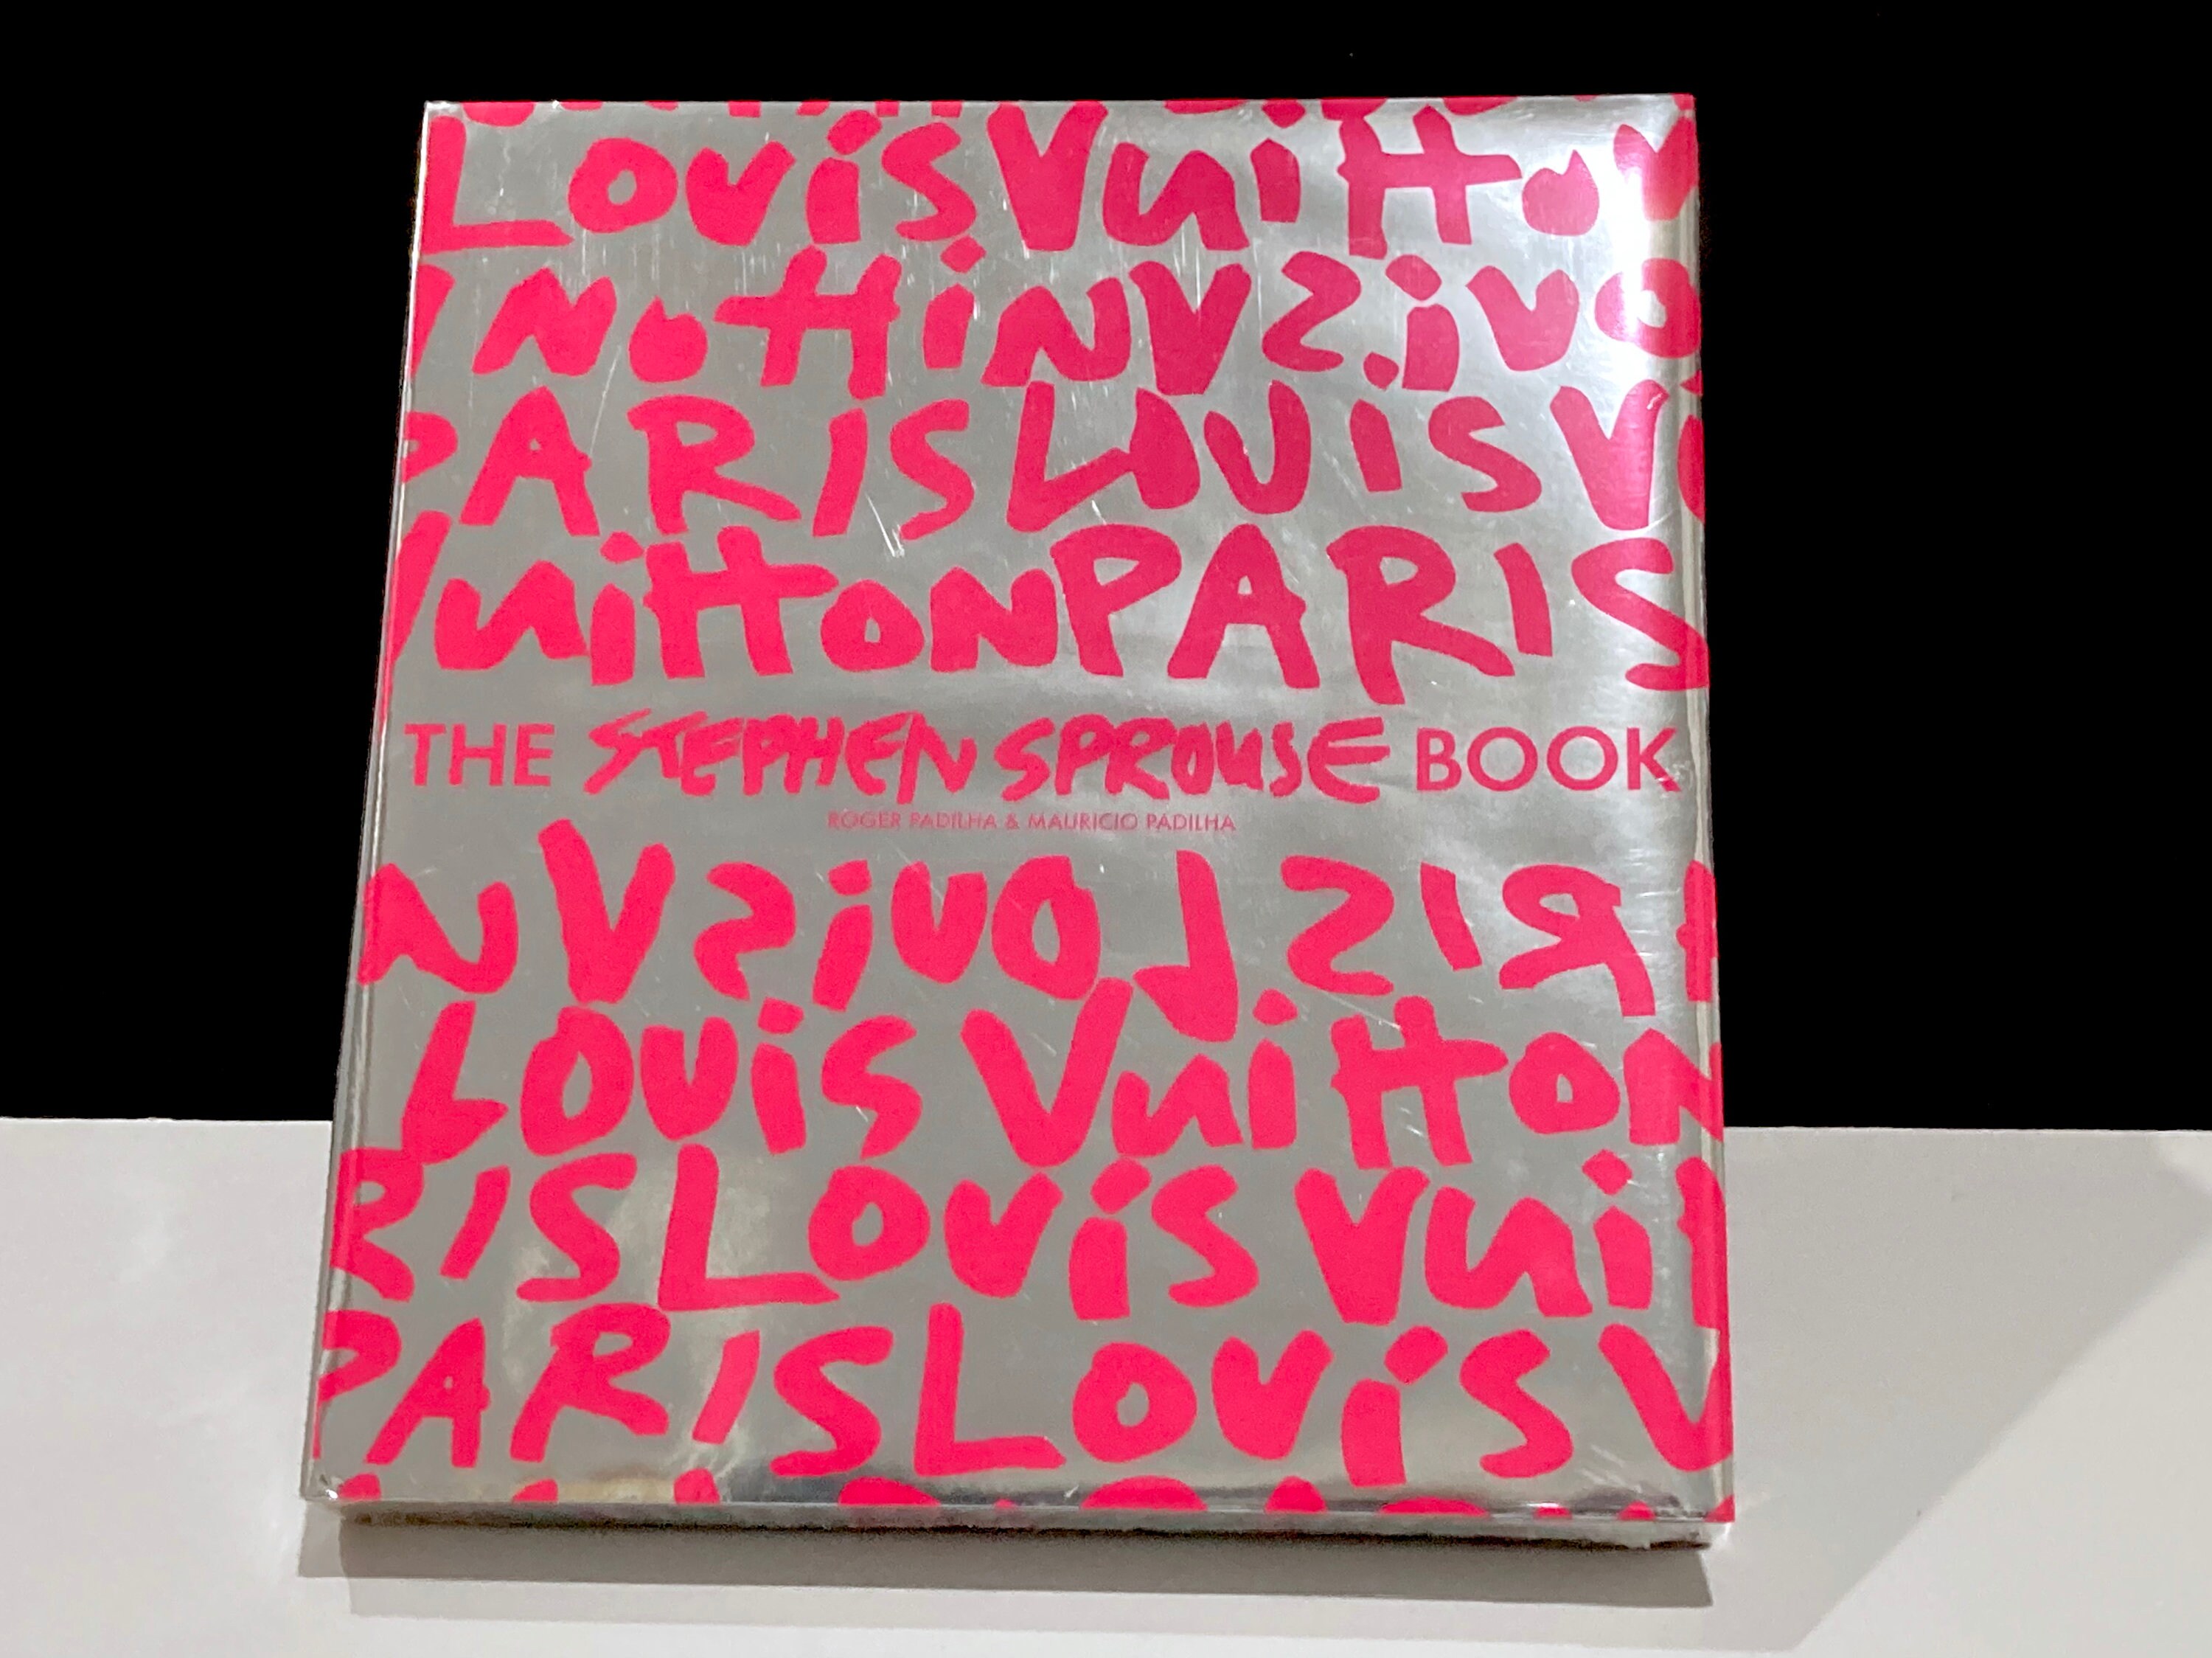 Louis Vuitton
Nottin V Sivo
PARIS Louis V
Vuitton PARIS
THE STEPHEN SPROUSE BOOK
ROGER PADILHA & MAURICIO PADILHA
NV SiuoL SIR
Louis Vuitton
RIS Louis Vuit
PARIS Louis V